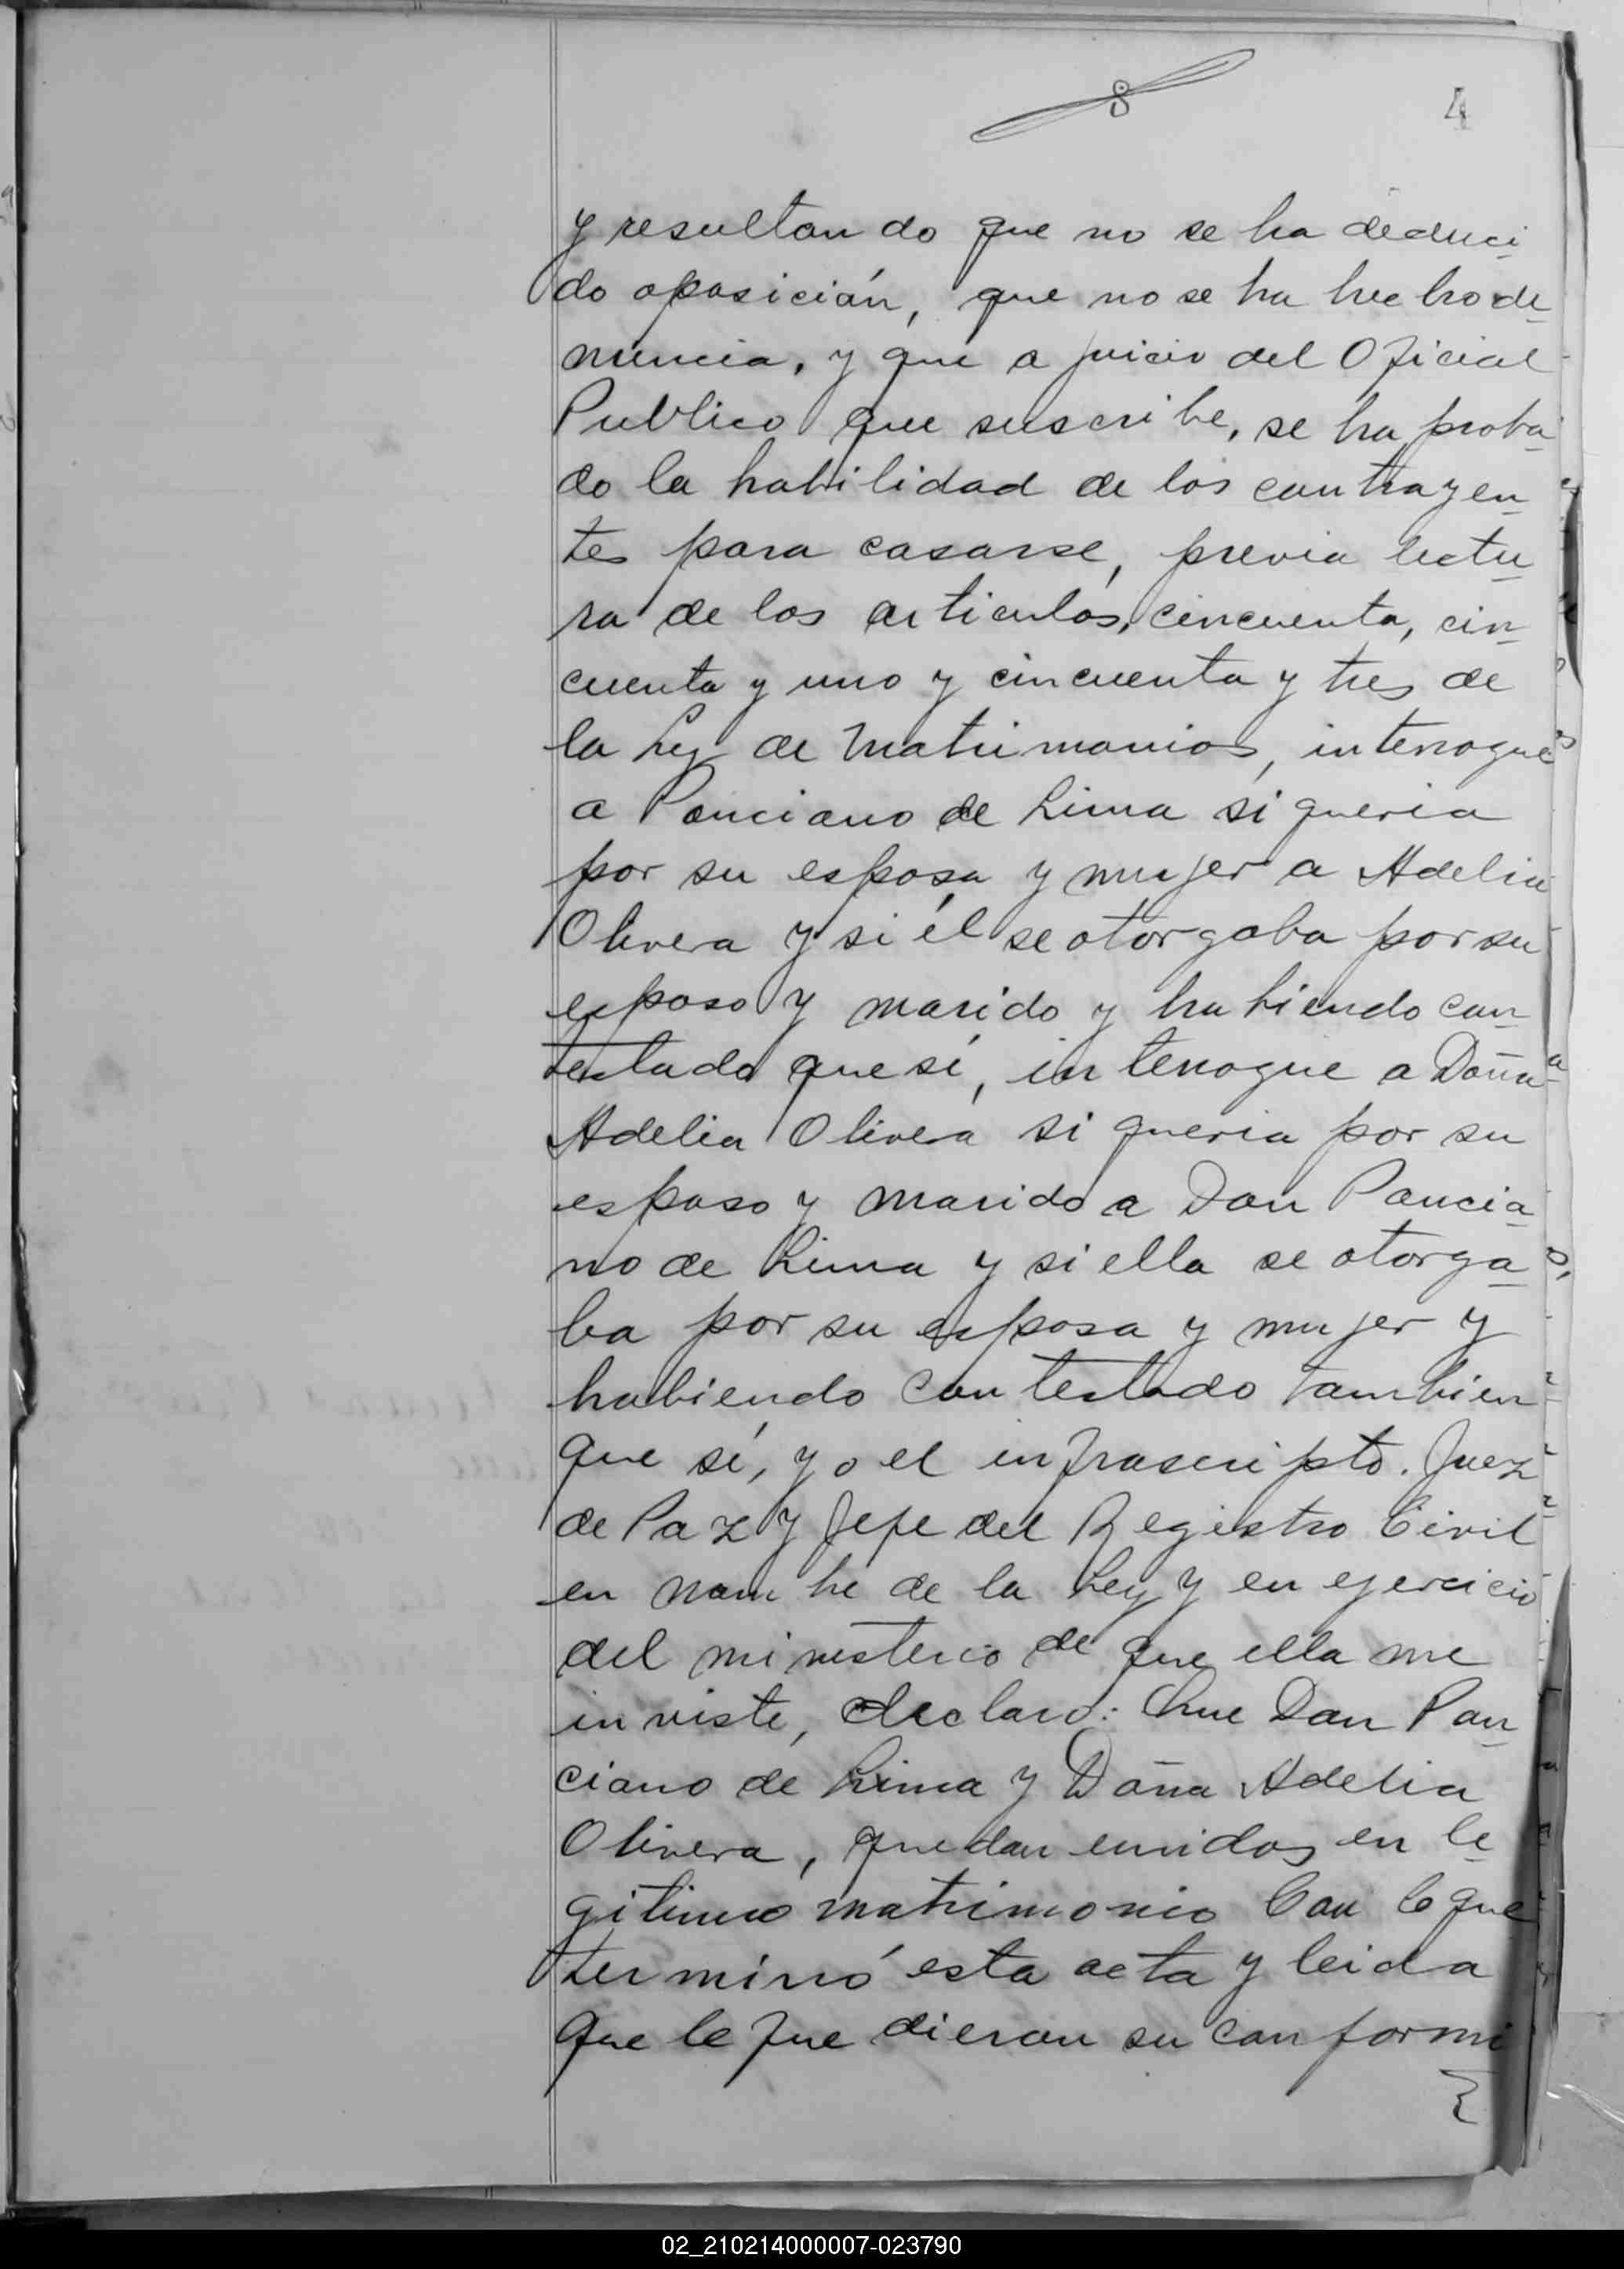 8
4
y resultando que no se ha deduci
do oposición, que no se ha hecho de
nuncia, y que a juicio del Oficial
Publico que suscribe, se ha proba
do la habilidad de los contrayen
tes para casarse, previa lectu
ra de los articulos, cincuenta, cin
cuenta y uno y cincuenta y tres de
la Ley de Matrimonios, interrogué
a Ponciano de Lima si queria
por su esposa y mujer a Adelia
Olivera y si él se otorgaba por su
esposo y marido y habiendo con
testado que sí, interrogue a Doña
Adelia Olivera si queria por su
esposo y marido a Don Poncia
no de Lima y si ella se otorga
ba por su esposa y mujer y
habiendo contestado tambien
que sí, yo el infrascripto. Juez
de Paz y Jefe del Registro Civil
en nombre de la Ley y en ejercicio
del ministerio de que ella me
inviste, declaro: Que Don Pon
ciano de Lima y Doña Adelia
Olivera, quedan unidos en le
gitimo matrimonio Con lo que
terminó esta acta y leida
que le fue dieron su conformi
02_210214000007-023790